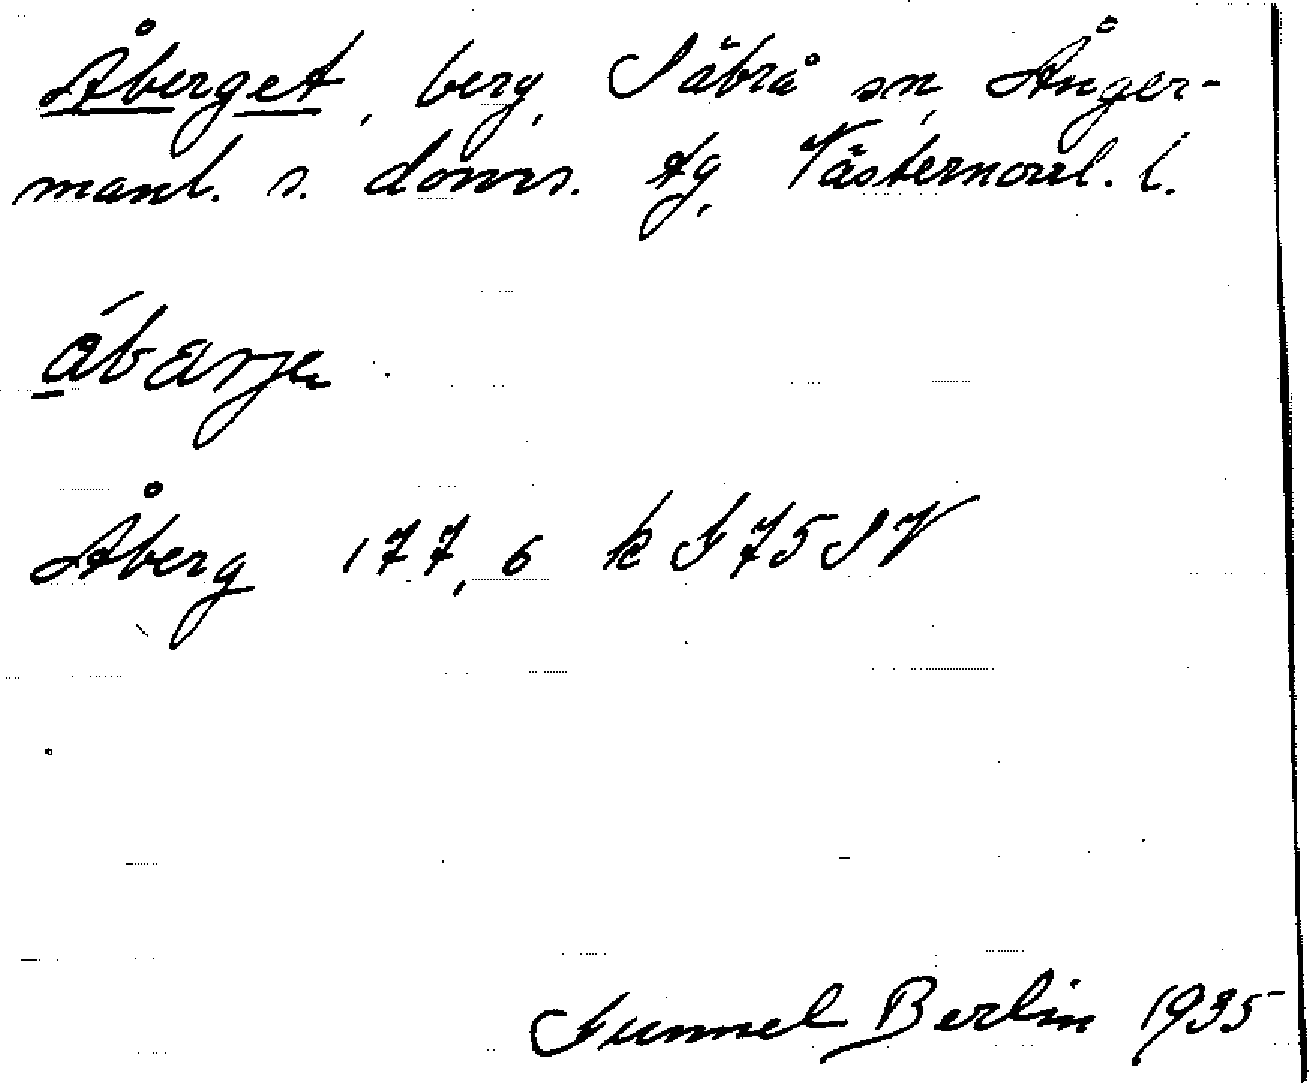 Åberget, berg, Säbrå sn, Ånger-
manl. s. domrs. tg, Västernorrl. l.
ábarje
Åberg 177,6 k J75SV
Gunnel Berlin 1935